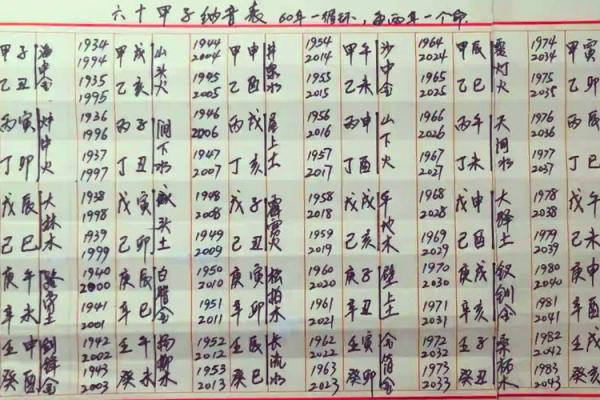 六十甲子纳音表 60年一循环,每两年一个命
甲子 海中金 1934 1994 甲戌 山头火 1944 2004 甲申 井泉水 1954 2014 甲午 沙中金 1964 2024 甲辰 覆灯火 1974 2034 甲寅
乙丑 1935 1995 乙亥 1945 2005 乙酉 1955 2015 乙未 1965 2025 乙巳 1975 2035 乙卯
丙寅 炉中火 1936 1996 丙子 涧下水 1946 2006 丙戌 屋上土 1956 2016 丙申 山下火 1966 2026 丙午 天河水 1976 2036 丙辰
丁卯 1937 1997 丁丑 1947 2007 丁亥 1957 2017 丁酉 1967 2027 丁未 1977 2037 丁巳
戊辰 大林木 1938 1998 戊寅 城头土 1948 2008 戊子 霹雳火 1958 2018 戊戌 平地木 1968 2028 戊申 大驿土 1978 2038 戊午
己巳 1939 1999 己卯 1949 2009 己丑 1959 2019 己亥 1969 2029 己酉 1979 2039 己未
庚午 路旁土 1940 2000 庚辰 白腊金 1950 2010 庚寅 松柏木 1960 2020 庚子 壁上土 1970 2030 庚戌 钗钏金 1980 2040 庚申
辛未 1941 2001 辛巳 1951 2011 辛卯 1961 2021 辛丑 1971 2031 辛亥 1981 2041 辛酉
壬申 剑锋金 1942 2002 壬午 杨柳木 1952 2012 壬辰 长流水 1962 2022 壬寅 金箔金 1972 2032 壬子 桑柘木 1982 2042 壬戌
癸酉 1943 2003 癸未 1953 2013 癸巳 1963 2023 癸卯 1973 2033 癸丑 1983 2043 癸亥